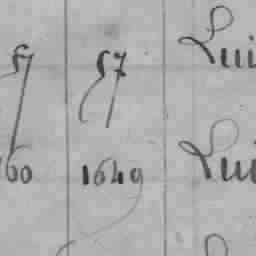 57 57 Lui
160 1649 Lui